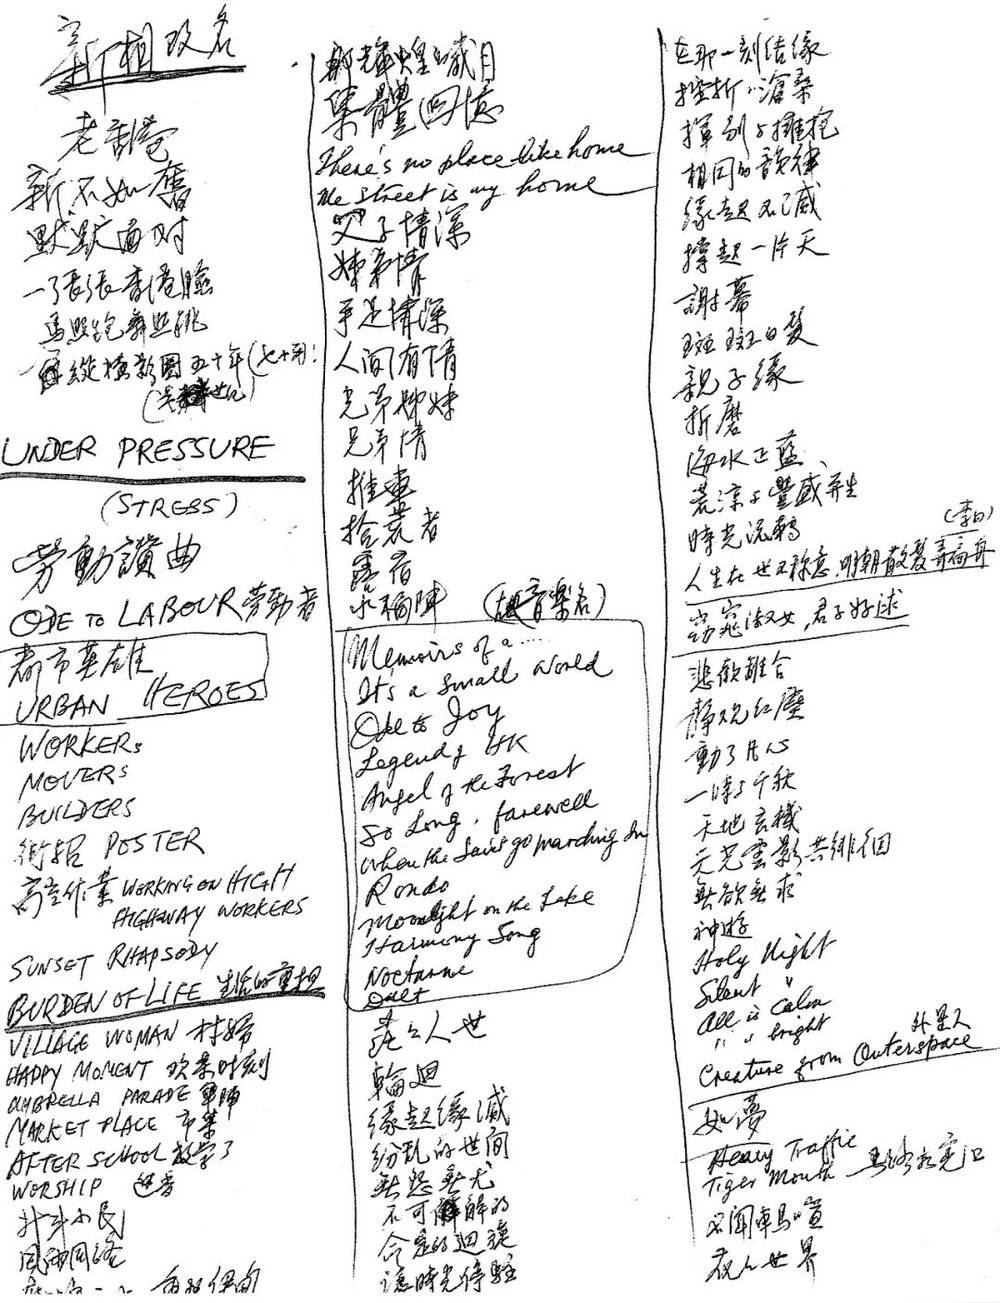 新相改名
老香港
新不如舊
默默面对
一張張香港臉
馬照跑舞照跳
縱橫 五十年
UNDER PRESSURE
(STRESS)
勞動讚曲
ODE TO LABOUR 勞動者
都市英雄
URBAN HEROES
WORKERS
MOVERS
BUILDERS
街招 POSTER
高空作業 WORKING ON HIGH
HIGHWAY WORKERS
SUNSET RHAPSODY
BURDEN OF LIFE 生活的重担
VILLAGE WOMAN 村婦
HAPPY MOMENT 欢樂时刻
UMBRELLA PARADE
MARKET PLACE 市集
AFTER SCHOOL 放学了
WORSHIP
升斗小民
那光輝煌的歲月
集體回憶
There's no place like home
The street is my home
父子情深
姊弟情
手足情深
人间有情
兄弟姊妹
兄弟情
推車
拾荒者
露宿
(音樂名)
Memoirs of a.....
It's a small world
Ode to Joy
Legend of HK
Angel of the Forest
So Long, farewell
When the Saints go marching In
Rondo
Moonlight on the Lake
Harmony Song
Nocturne
Duet
人世
輪迴
緣起緣滅
纷乱的世间
無怨無尤
不可解的
命定的迴旋
讓時光停駐
在那一刻结缘
挫折 滄桑
揮别与擁抱
相同的韵律
缘起不滅
撐起一片天
謝幕
斑斑白髮
親子緣
折磨
海水正藍
荒涼与豐盛并生
時光流轉
(李白)
人生在世不称意,明朝散髮弄扁舟
窈窕淑女,君子好逑
悲歡離合
靜观红塵
動了凡心
一時与千秋
天地玄機
天光雲影共徘徊
無欲無求
神遊
Holy Night
Silent "
All is calm
" " bright
外星人
Creature from Outerspace
如夢
Heavy Traffic
Tiger Mouth 馬路如虎口
不聞車馬喧
世界